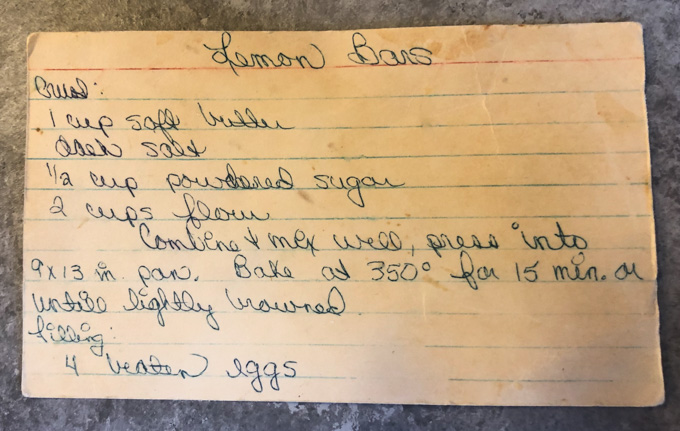 Lemon Bars
Crust:
1 cup soft butter
dash salt
1/2 cup powdered sugar
2 cups flour
Combine & mix well, press into
9x13 in. pan. Bake at 350° for 15 min. or
untill lightly browned
filling:
4 beaten eggs